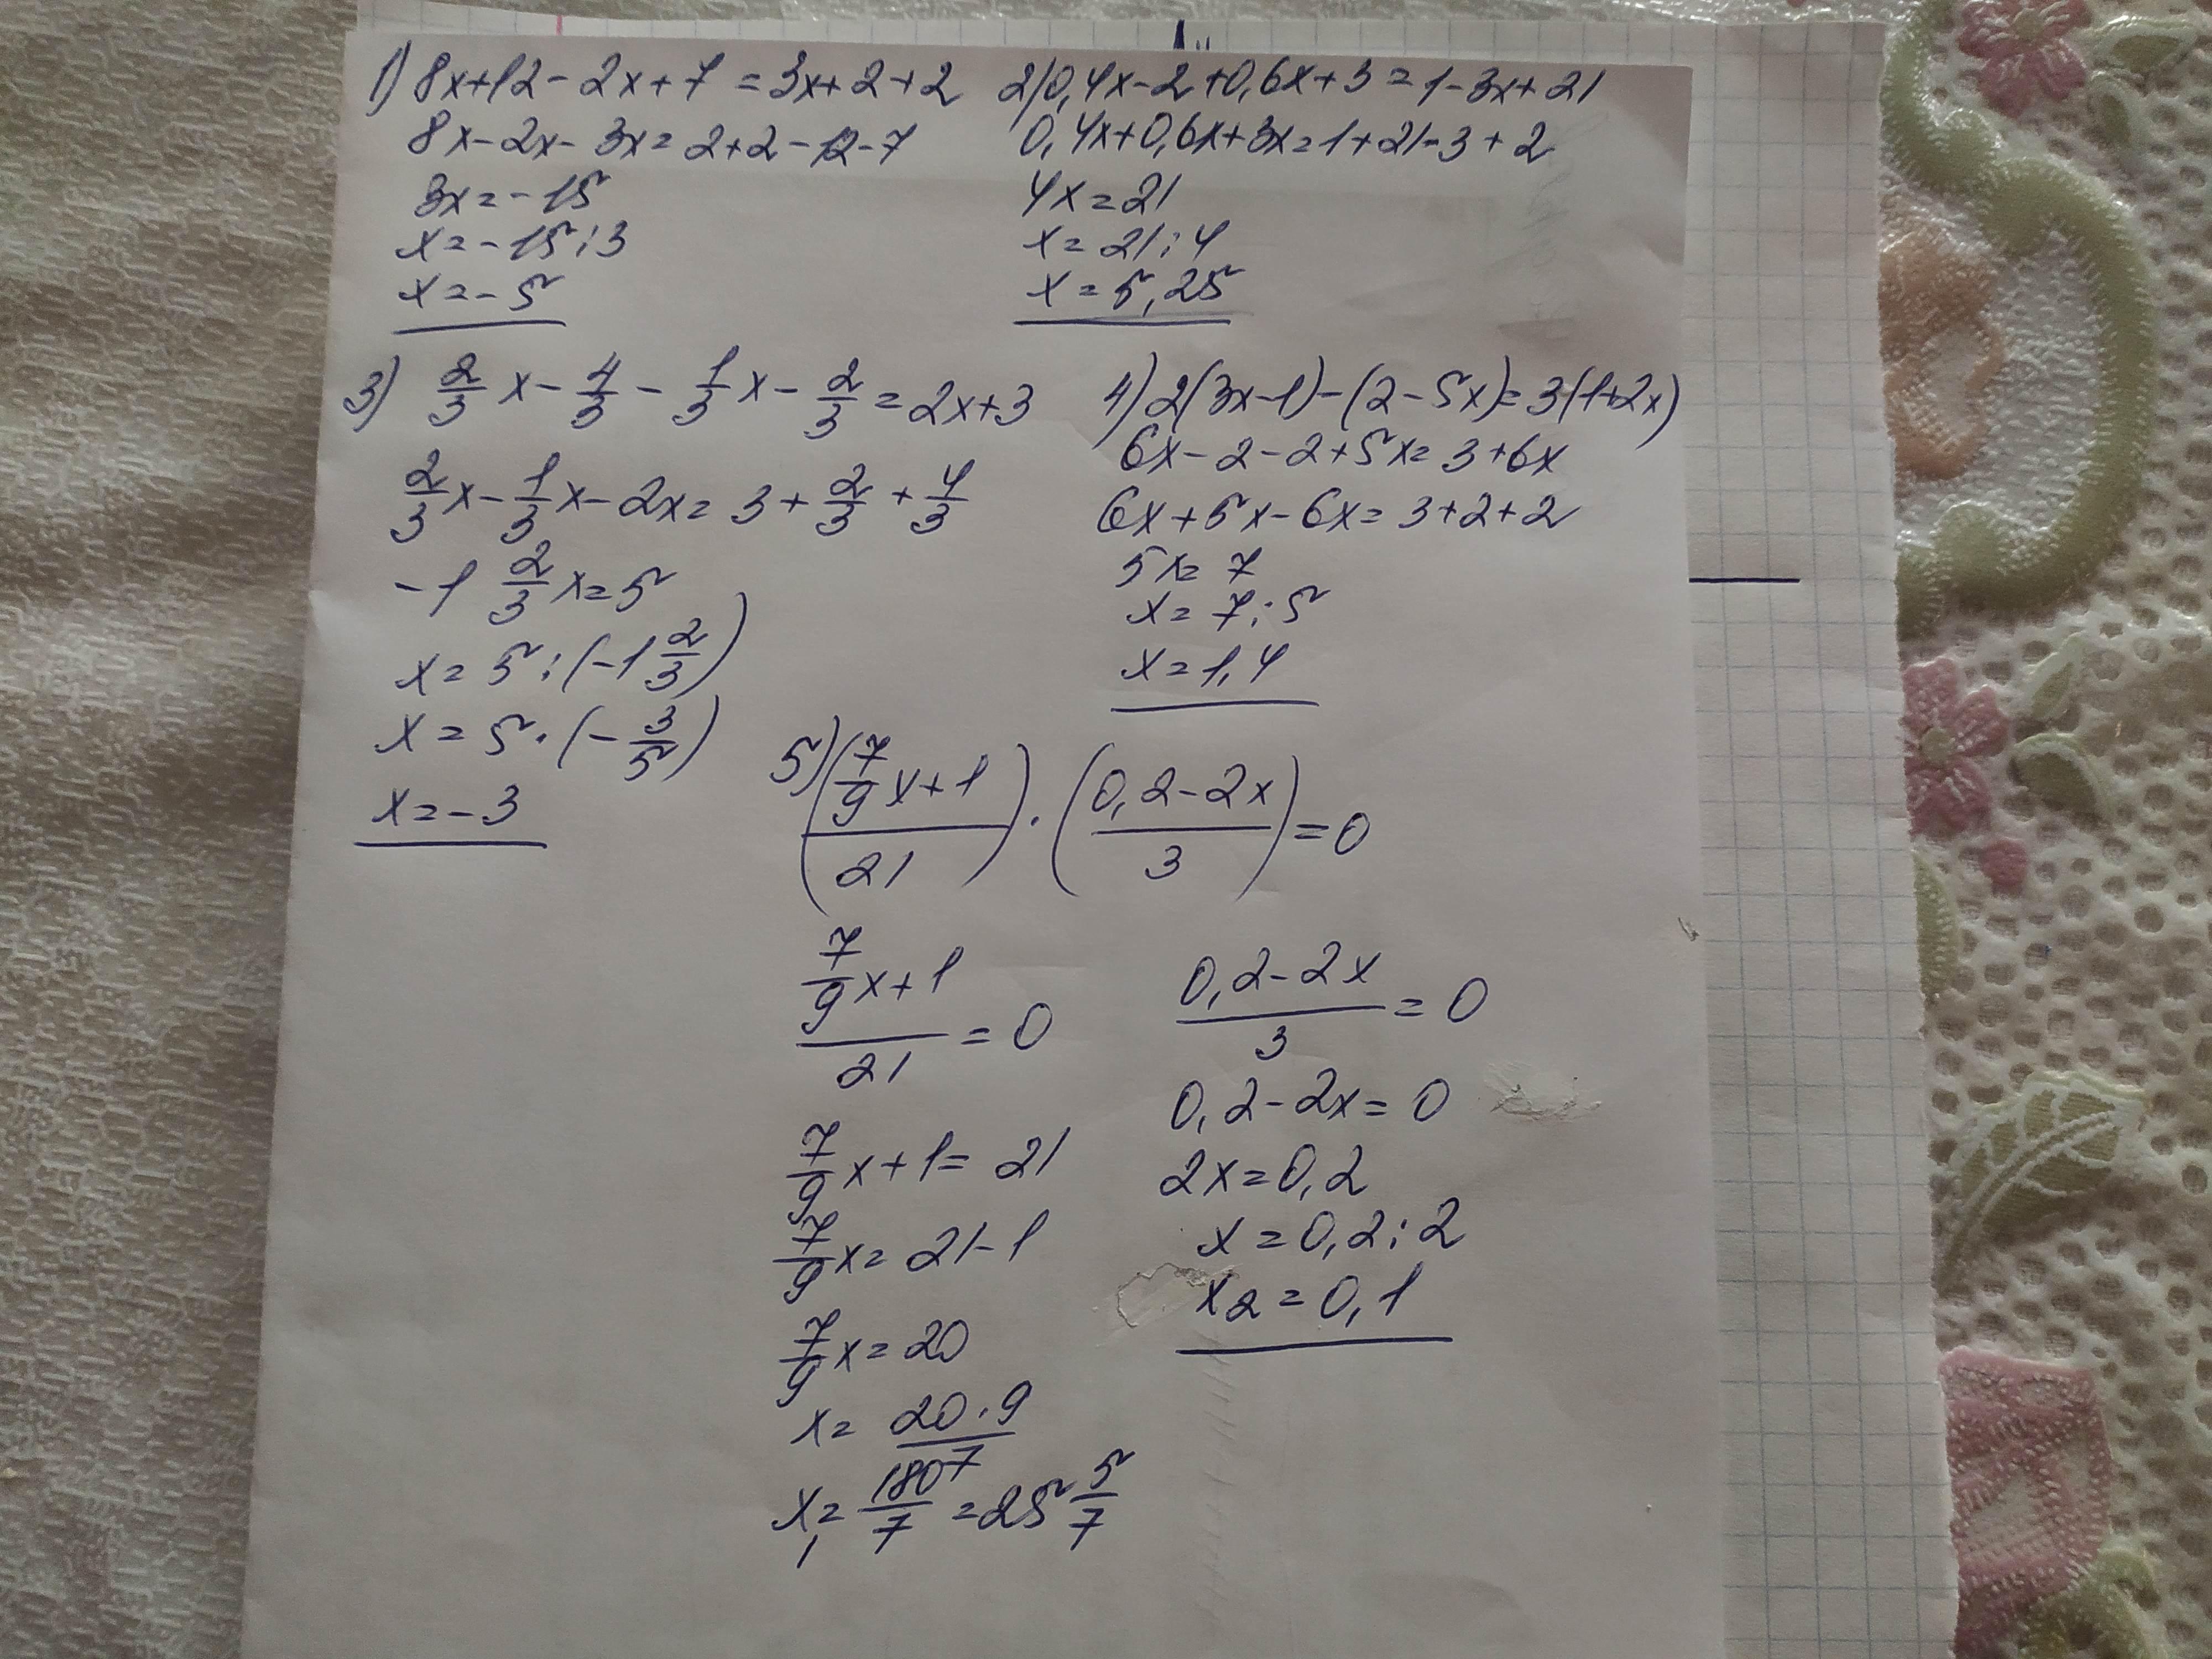 1) 8x+12-2x+7=3x+2+2
8x-2x-3x=2+2-12-7
3x=-15
x=-15:3
x=-5
2) 0,4x-2+0,6x+3=1-3x+21
0,4x+0,6x+3x=1+21-3+2
4x=21
x=21:4
x=5,25
3) 2/3 x - 4/3 - 1/3 x - 2/3 = 2x+3
2/3 x - 1/3 x - 2x = 3 + 2/3 + 4/3
-1 2/3 x=5
x=5:(-1 2/3)
x=5·(-3/5)
x=-3
4) 2(3x-1)-(2-5x)=3(1+2x)
6x-2-2+5x=3+6x
6x+5x-6x=3+2+2
5x=7
x=7:5
x=1,4
5) ((7/9 x+1)/21)·((0,2-2x)/3)=0
(7/9 x+1)/21=0
7/9 x+1=21
7/9 x=21-1
7/9 x=20
x=20·9/7
x1=180/7=25 5/7
(0,2-2x)/3=0
0,2-2x=0
2x=0,2
x=0,2:2
x2=0,1